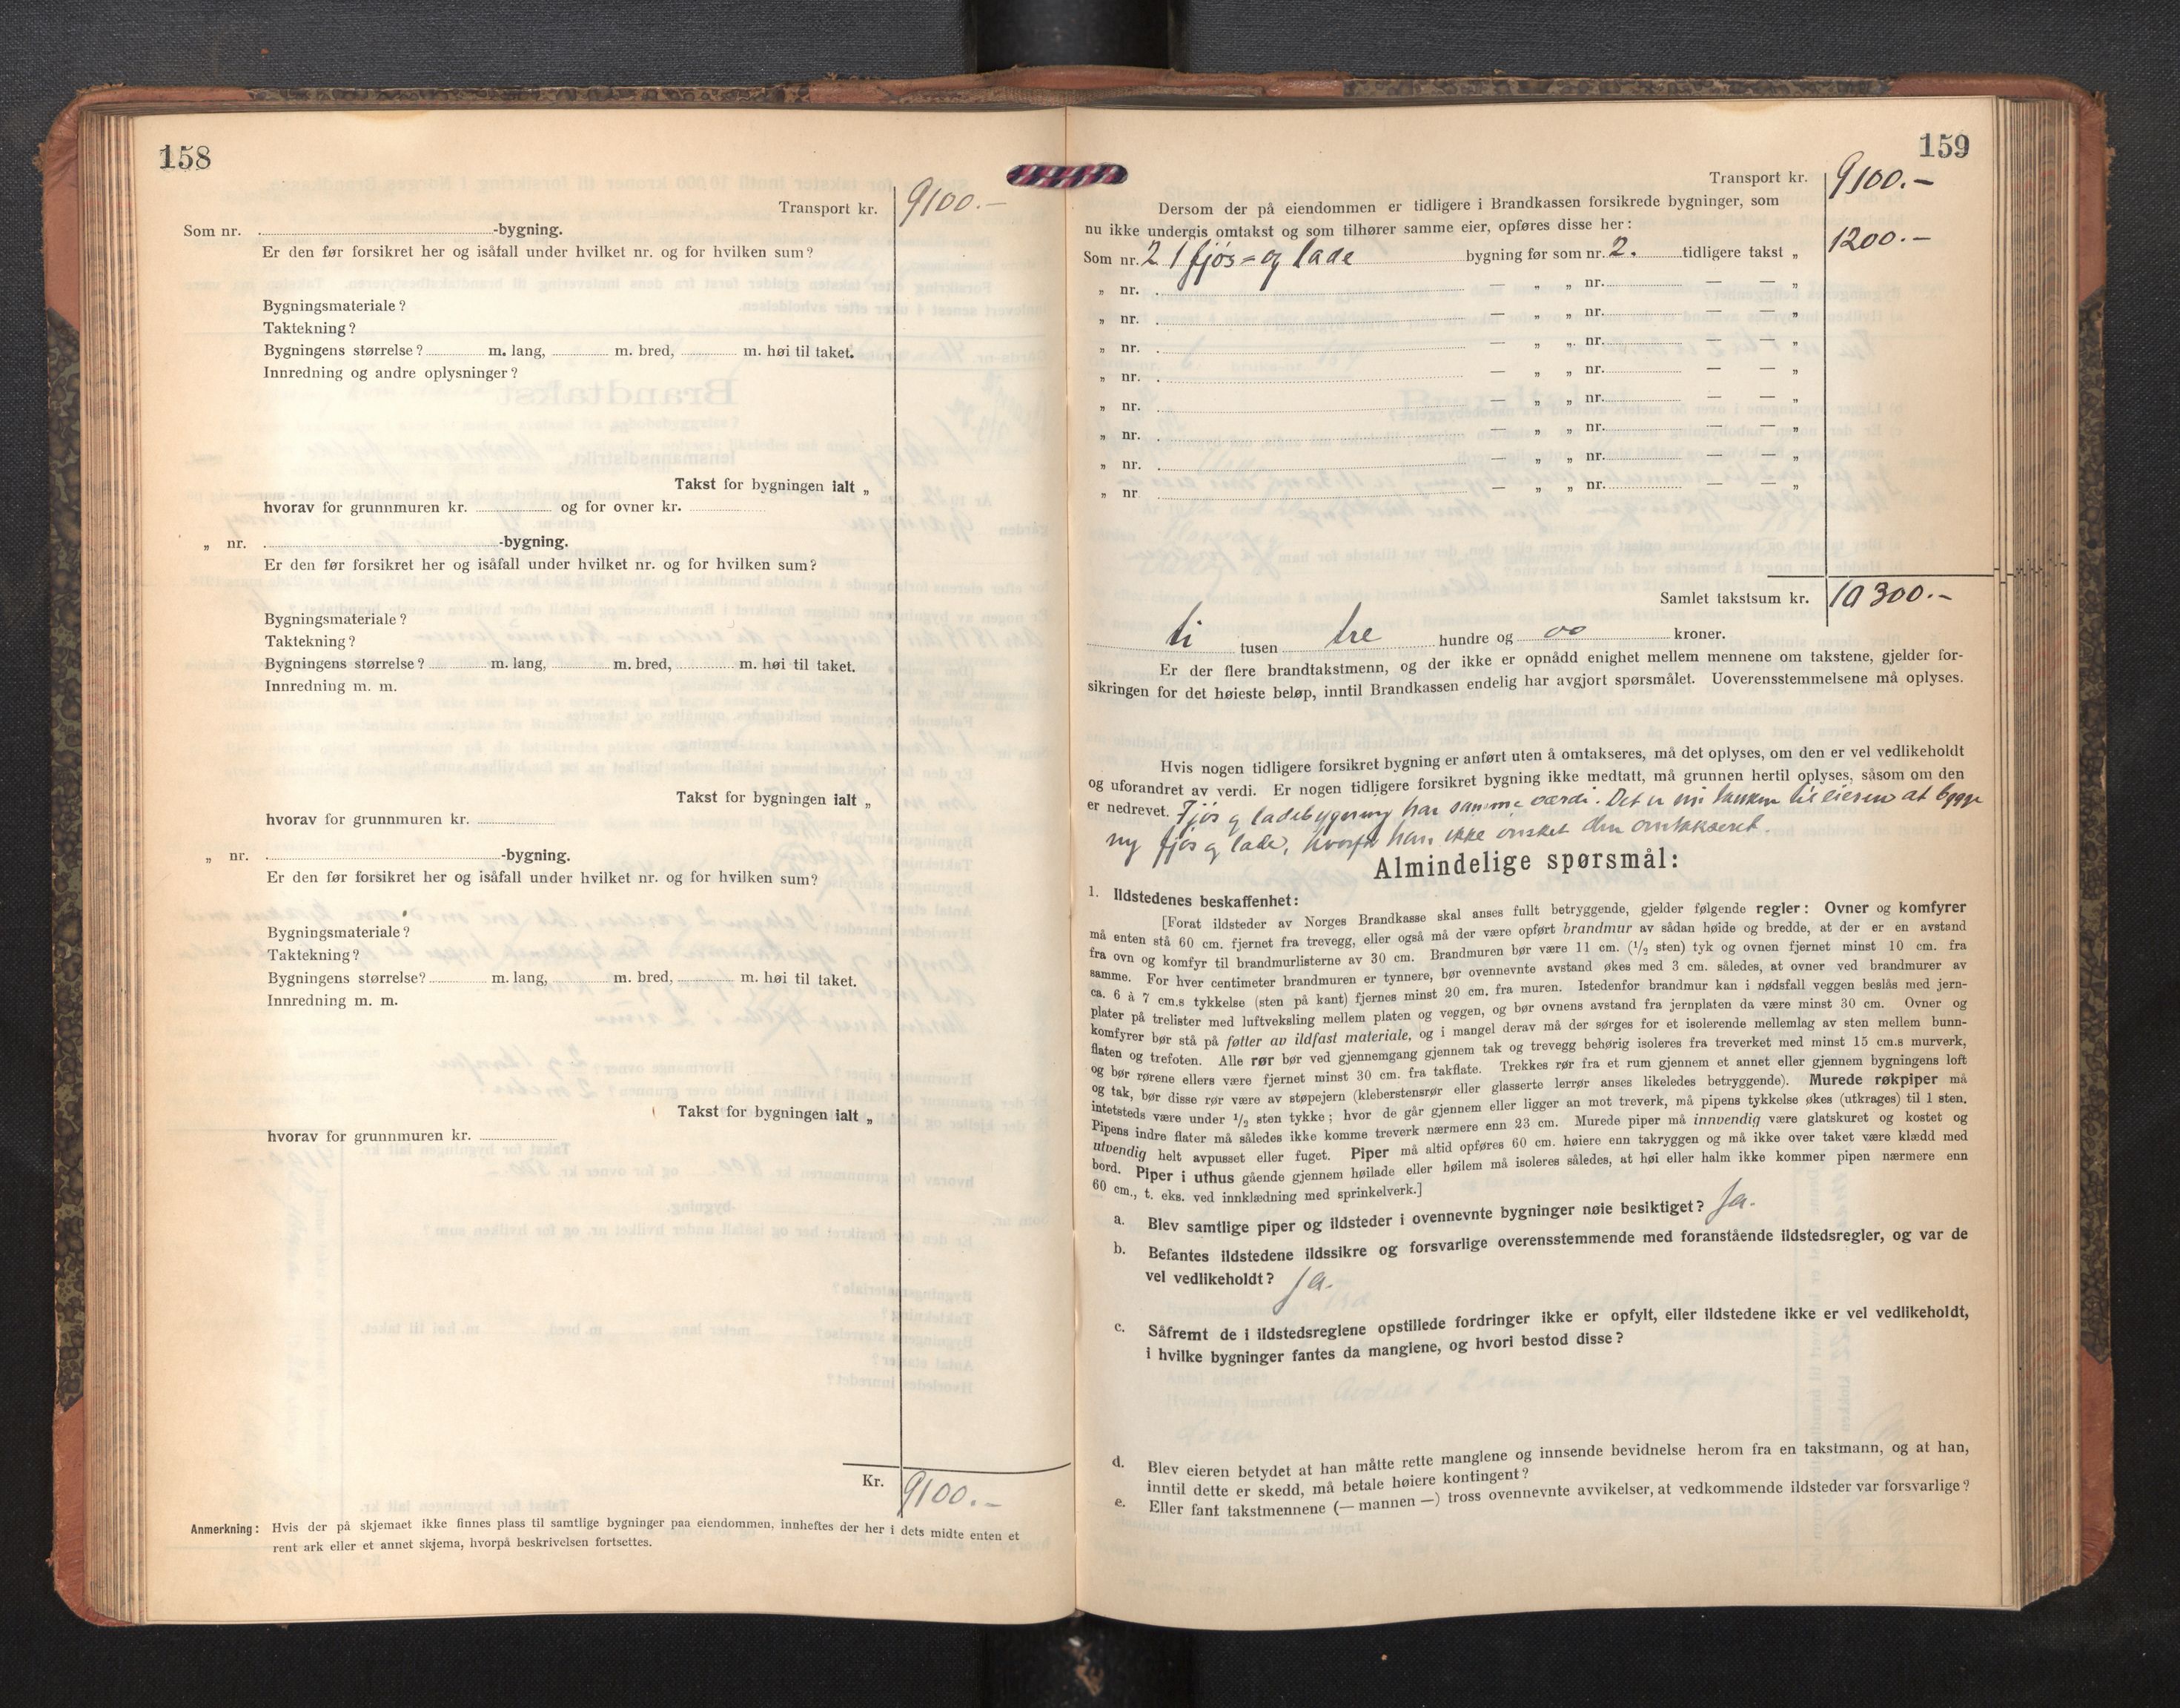 158
Transport kr. 9100.-
Som nr. -bygning.
Er den før forsikret her og isåfall under hvilket nr. og for hvilken sum?
Bygningsmateriale?
Taktekning?
Bygningens størrelse? m. lang, m. bred, m. høi til taket.
Innredning og andre oplysninger?
Takst for bygningen ialt „
hvorav for grunnmuren kr. og for ovner kr.
„ nr. -bygning.
Er den før forsikret her og isåfall under hvilket nr. og for hvilken sum?
Bygningsmateriale?
Taktekning?
Bygningens størrelse? m. lang, m. bred, m. høi til taket.
Innredning m. m.
Takst for bygningen ialt „
hvorav for grunnmuren kr.
„ nr. -bygning.
Er den før forsikret her og isåfall under hvilket nr. og for hvilken sum?
Bygningsmateriale?
Taktekning?
Bygningens størrelse? m. lang, m. bred, m. høi til taket.
Innredning m. m.
Takst for bygningen ialt „
hvorav for grunnmuren kr.
Kr. 9100.-
Anmerkning: Hvis der på skjemaet ikke finnes plass til samtlige bygninger paa eiendommen, innheftes der her i dets midte enten et
rent ark eller et annet skjema, hvorpå beskrivelsen fortsettes.
159
Transport kr. 9100.-
Dersom der på eiendommen er tidligere i Brandkassen forsikrede bygninger, som
nu ikke undergis omtakst og som tilhører samme eier, opføres disse her:
Som nr. 2 1 fjøs= og lade bygning før som nr. 2. tidligere takst „ 1200.-
„ nr. — „ „ nr. — — „
„ nr. — „ „ nr. — — „
„ nr. — „ „ nr. — — „
„ nr. — „ „ nr. — — „
„ nr. — „ „ nr. — — „
„ nr. — „ „ nr. — — „
„ nr. — „ „ nr. — — „
„ nr — „ „ nr. — — „
Samlet takstsum kr. 10300.-
ti tusen tre hundre og oo kroner.
Er der flere brandtakstmenn, og der ikke er opnådd enighet mellem mennene om takstene, gjelder for-
sikringen for det høieste beløp, inntil Brandkassen endelig har avgjort spørsmålet. Uoverensstemmelsene må oplyses.
Hvis nogen tidligere forsikret bygning er anført uten å omtakseres, må det oplyses, om den er vel vedlikeholdt
og uforandret av verdi. Er nogen tidligere forsikret bygning ikke medtatt, må grunnen hertil oplyses, såsom om den
er nedrevet. Fjøs og ladebygning har samme værdi. Det er en tanken til eieren at bygge
ny fjøs og lade, hvorfor han ikke ønsket den omtakseret.
Almindelige spørsmål:
1. Ildstedenes beskaffenhet:
[Forat ildsteder av Norges Brandkasse skal anses fullt betryggende, gjelder følgende regler: Ovner og komfyrer
må enten stå 60 cm. fjernet fra trevegg, eller også må der være opført brandmur av sådan høide og bredde, at der er en avstand
fra ovn og komfyr til brandmurlisterne av 30 cm. Brandmuren bør være 11 cm. (1/2 sten) tyk og ovnen fjernet minst 10 cm. fra
samme. For hver centimeter brandmuren er tynnere, bør ovennevnte avstand økes med 3 cm. således, at ovner ved brandmurer av
ca. 6 à 7 cm.s tykkelse (sten på kant) fjernes minst 20 cm. fra muren. Istedenfor brandmur kan i nødsfall veggen beslås med jern-
plater på trelister med luftveksling mellem platen og veggen, og bør ovnens avstand fra jernplaten da være minst 30 cm. Ovner og
komfyrer bør stå på føtter av ildfast materiale, og i mangel derav må der sørges for et isolerende mellemlag av sten mellem bunn-
flaten og trefoten. Alle rør bør ved gjennemgang gjennem tak og trevegg behørig isoleres fra treverket med minst 15 cm.s murverk,
og bør rørene ellers være fjernet minst 30 cm. fra takflate. Trekkes rør fra et rum gjennem et annet eller gjennem bygningens loft
og tak, bør disse rør være av støpejern (kleberstensrør eller glasserte lerrør anses likeledes betryggende). Murede røkpiper må
intetsteds være under 1/2 sten tykke; hvor de går gjennem eller ligger an mot treverk, må pipens tykkelse økes (utkrages) til 1 sten.
Pipens indre flater må således ikke komme treverk nærmere enn 23 cm. Murede piper må innvendig være glatskuret og kostet og
utvendig helt avpusset eller fuget. Piper må altid opføres 60 cm. høiere enn takryggen og må ikke over taket være klædd med
bord. Piper i uthus gående gjennem høilade eller høilem må isoleres således, at høi eller halm ikke kommer pipen nærmere enn
60 cm., t. eks. ved innklædning med sprinkelverk.]
a. Blev samtlige piper og ildsteder i ovennevnte bygninger nøie besiktiget? Ja.
b. Befantes ildstedene ildssikre og forsvarlige overensstemmende med foranstående ildstedsregler, og var de
vel vedlikeholdt? Ja.
c. Såfremt de i ildstedsreglene opstillede fordringer ikke er opfylt, eller ildstedene ikke er vel vedlikeholdt,
i hvilke bygninger fantes da manglene, og hvori bestod disse?
d. Blev eieren betydet at han måtte rette manglene og innsende bevidnelse herom fra en takstmann, og at han,
inntil dette er skedd, må betale høiere kontingent?
e. Eller fant takstmennene (— mannen —) tross ovennevnte avvikelser, at vedkommende ildsteder var forsvarlige?